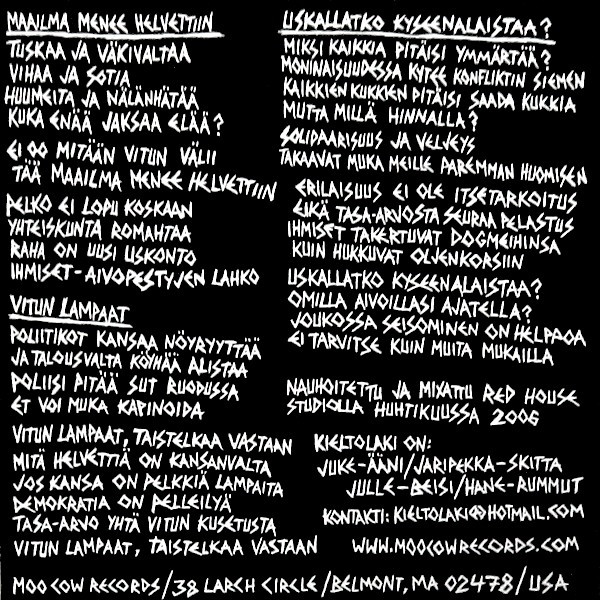 MAAILMA MENEE HELVETTIIN
TUSKAA JA VÄKIVALTAA
VIHAA JA SOTIA
HUUMEITA JA NÄLÄNHÄTÄÄ
KUKA ENÄÄ JAKSAA ELÄÄ?
EI OO MITÄÄN VITUN VÄLII
TÄÄ MAAILMA MENEE HELVETTIIN
PELKO EI LOPU KOSKAAN
YHTEISKUNTA ROMAHTAA
RAHA ON UUSI USKONTO
IHMISET-AIVOPESTYJEN LAHKO
VITUN LAMPAAT
POLIITIKOT KANSAA NÖYRYYTTÄÄ
JA TALOUSVALTA KÖYHÄÄ ALISTAA
POLIISI PITÄÄ SUT RUODUSSA
ET VOI MUKA KAPINOIDA
VITUN LAMPAAT, TAISTELKAA VASTAAN
MITÄ HELVETTIÄ ON KANSANVALTA
JOS KANSA ON PELKKIÄ LAMPAITA
DEMOKRATIA ON PELLEILYÄ
TASA-ARVO YHTÄ VITUN KUSETUSTA
VITUN LAMPAAT, TAISTELKAA VASTAAN
USKALLATKO KYSEENALAISTAA?
MIKSI KAIKKIA PITÄISI YMMÄRTÄÄ?
MONINAISUUDESSA KYTEE KONFLIKTIN SIEMEN
KAIKKIEN KUKKIEN PITÄISI SAADA KUKKIA
MUTTA MILLÄ HINNALLA?
SOLIDAARISUUS JA VELJEYS
TAKAAVAT MUKA MEILLE PAREMMAN HUOMISEN
ERILAISUUS EI OLE ITSETARKOITUS
EIKÄ TASA-ARVOSTA SEURAA PELASTUS
IHMISET TAKERTUVAT DOGMEIHINSA
KUIN HUKKUVAT OLJENKORSIIN
USKALLATKO KYSEENALAISTAA?
OMILLA AIVOILLASI AJATELLA?
JOUKOSSA SEISOMINEN ON HELPPOA
EI TARVITSE KUIN MUITA MUKAILLA
NAUHOITETTU JA MIXATTU RED HOUSE
STUDIOLLA HUHTIKUUSSA 2006
KIELTOLAKI ON:
JUKE-ÄÄNI/JARIPEKKA-SKITTA
JULLE-BEISI/HANE-RUMMUT
KONTAKTI: KIELTOLAKI@HOTMAIL.COM
WWW.MOOCOWRECORDS.COM
MOO COW RECORDS/38 LARCH CIRCLE/BELMONT, MA 02478/USA